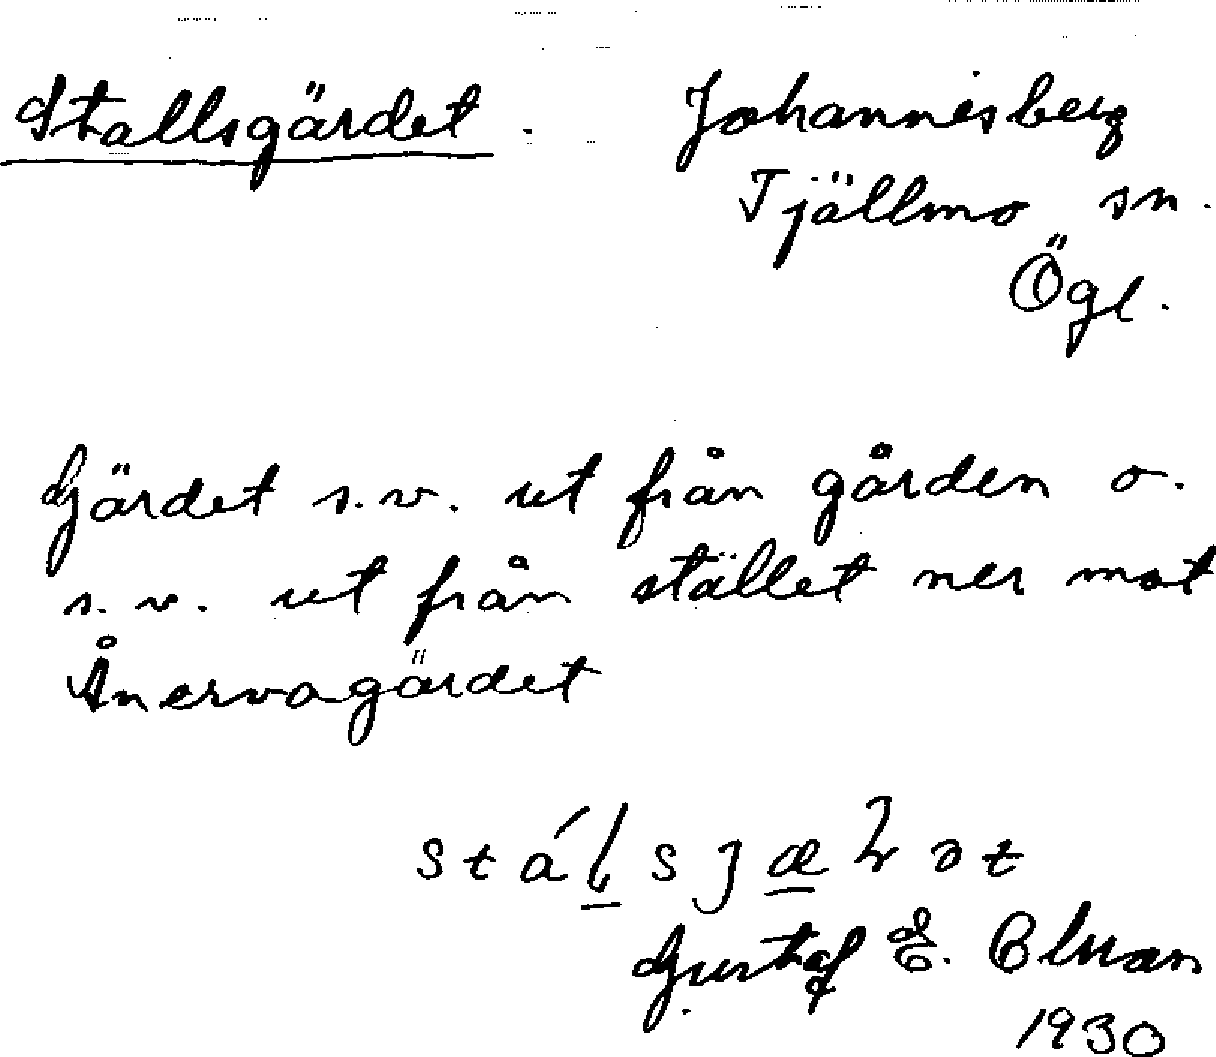 Stallsgärdet. Johannesberg
Tjällmo sn.
Ögl.
Gärdet s.v. ut från gården o.
s.v. ut från stället ner mot
Ånervagärdet
Gustaf E.
1930